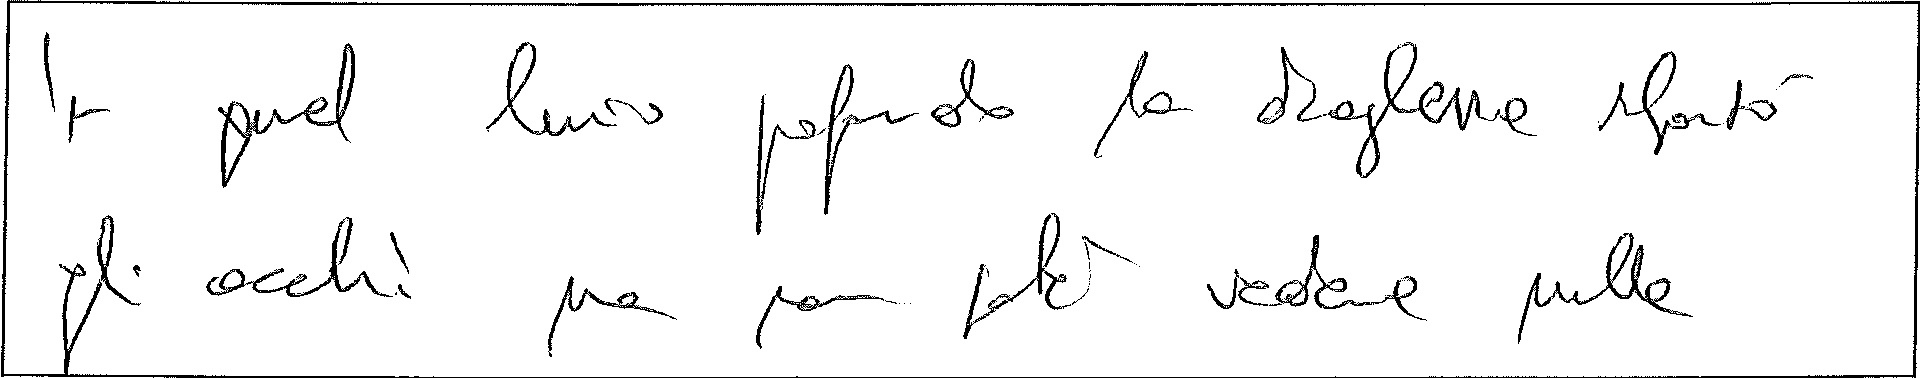 In quel buio profondo la dragonessa sforzò
gli occhi ma non poté vedere nulla